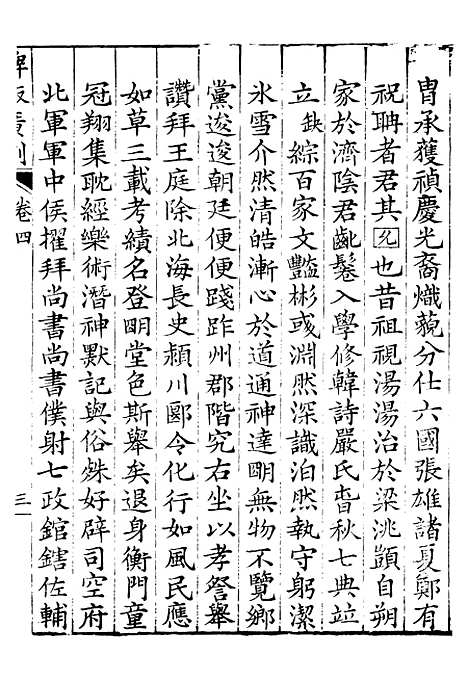 胄承獲禎慶光裔熾藐分仕六國張雄諸夏鄭有
祝聃者君其允也昔祖視湯湯治於梁洮顗自朔
家於濟陰君齓入學修韓詩嚴氏旾秋七典竝
立缺綜百家文豔彬彧淵然深識泊然執守躬潔
氷雪介然清皓漸心於道通神達朙無物不覽鄉
黨逡逡朝廷便便踐阼州郡階究右坐以孝詧舉
讚拜王庭除北海長史潁川郾令化行如風民應
如草三載考績名登朙堂色斯舉矣退身衡門童
冠翔集耽經樂術潛神默記與俗殊好辟司空府
北軍軍中侯擢拜尚書尚書僕射七政錧鎋佐輔
碑版廣例
卷四
三